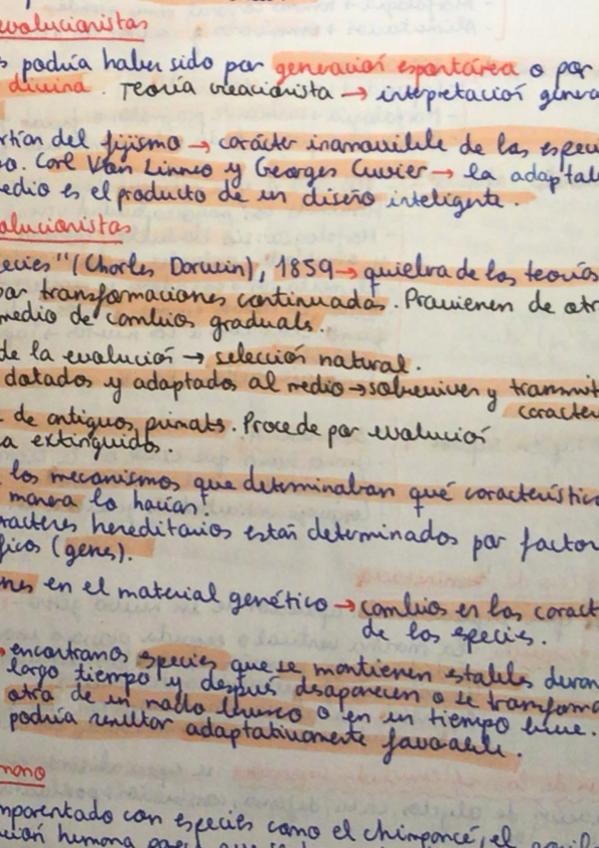 evolucionistas
s podría haber sido por generación espontánea o por
divina. Teoría creacionista → interpretación
rtían del fijismo → carácter inamovible de las especi
o. Carl Von Linneo y Georges Cuvier → la adap'tab
edio es el producto de un diseño inteligente.
alucionistas
ecies" (Charles Darwin), 1859 → quiebra de las teorías
por transformaciones continuadas. Provienen de otr
medio de cambios graduals.
de la evolución → selección natural.
dotados y adaptados al medio → sobreviven y transmit
caracter
de antiguos primats. Procede por evolución
a extinguidos.
los mecanismos que determinaban qué característic
manera lo hacían.
racteres hereditarios están determinados por factor
ficos (genes).
nes en el material genético → cambios en los caract
de las especies.
encontramos species que se mantienen estables duran
largo tiempo y después desaparecen o se transforma
otra de un modo brusco o en un tiempo breve.
podría resultar adaptativamente favorable.
mano
mparentado con especies como el chimpancé, el
ución humana